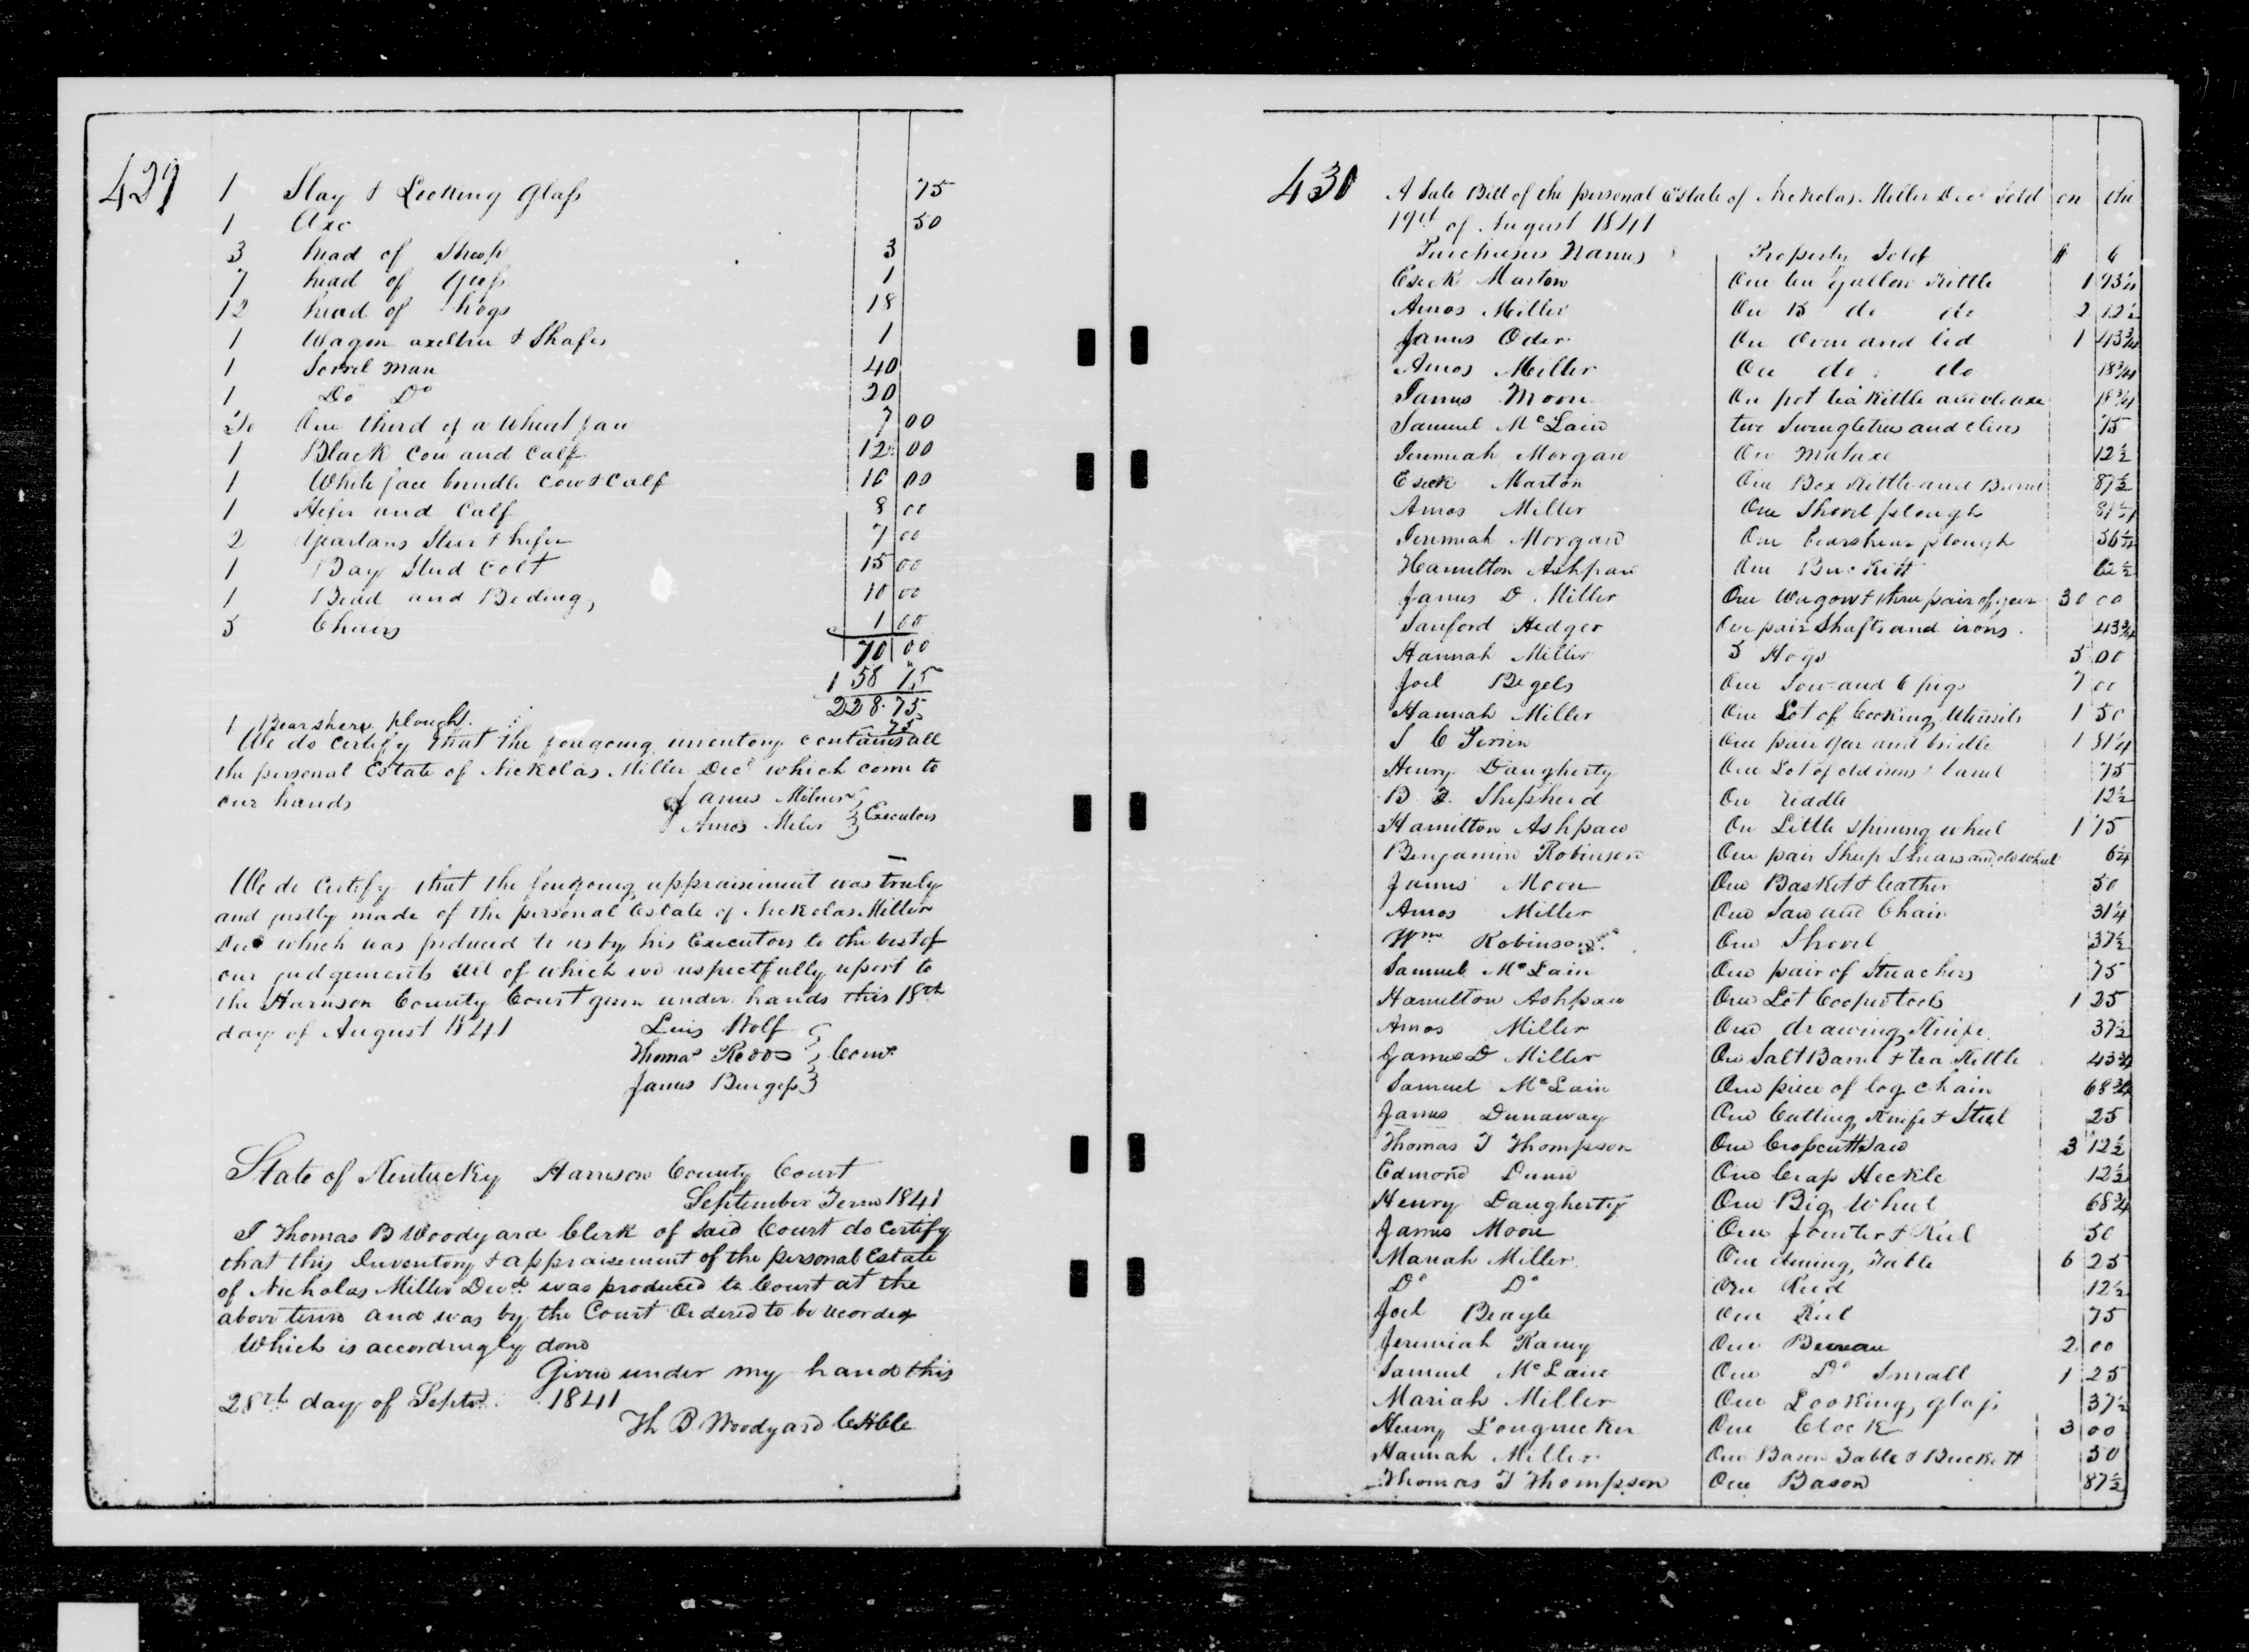 429
1 Slay & Looking Glass 75
1 Axe 50
3 head of Sheep 3
7 head of Geese 1
12 head of hogs 18
1 Wagon axeltree & Shafes 1
1 Sorrel Mare 40
1 Do Do 20
Do One third of a Wheat fan 7 00
1 Black Cow and Calf 12 00
1 White face brindle Cow & Calf 16 00
1 Hefer and Calf 8 00
2 Yearlans Steer & hefer 7 00
1 Bay Stud Colt 15 00
1 Bead and Beding 10 00
5 Chairs 1 00
70 00
158 75
228.75
1 Bearshere plough 75
We do Certify that the forgoing inventory contains all
the personal Estate of Nickolas Miller Decd which come to
our hands James Milner
Amos Miler } Executors
We do Certify that the forgoing appraisment was truly
and justly made of the personal Estate of Nickolas Miller
Decd which was produced to us by his Executors to the best of
our judgements all of which we respectfully report to
the Harrison County Court given under hands this 18th
day of August 1841 Luis Wolf
Thomas Redds } Coms
James Burgess
State of Kentucky Harrison County Court
September Term 1841
I Thomas B Woodyard Clerk of said Court do Certify
that this Inventory & appraisement of the personal Estate
of Nicholas Miller Decd was produced to Court at the
above term and was by the Court Ordered to be recorded
Which is accordingly done
Given under my hand this
28th day of Septr 1841
Th B Woodyard
430
A Sale Bill of the personal Estate of Nickolas Miller Decd Sold on the
19th of August 1841
Purchasers Names Property Sold $ c
Eseck Marton One ten gallon Kittle 1 93¾
Amos Miller On 15 do do 2 12½
James Oder On Oven and lid 1 43¾
Amos Miller On do do 18¾
James Moore On pot tea Kittle and old axe 18¾
Samuel McLain two Swingletrees and clives 75
Jeremiah Morgan On Mataxe 12½
Eseck Marton One Box Kittle and Barrel 87½
Amos Miller One Shovel plough 81¼
Jeremiah Morgan One bearshear plough 56¼
Hamilton Ashpaw One Buckitt 62½
James D Miller One Wagon & three pair of gear 30 00
Sanford Hedger One pair Shafts and irons 43¾
Hannah Miller 5 Hogs 5 00
Joel Begels One Sow and 6 pigs 7 00
Hannah Miller One Lot of Cooking Utinsils 1 50
S C Perrin One pair gear and bridle 1 31¼
Henry Daugherty One Lot of old irons & land 75
B F. Shepherd On riddle 12½
Hamilton Ashpaw On Little Spining wheel 1 75
Benjamin Robinson One pair Sheep Shears and old wheel 6¼
James Moon One Basket & leather 50
Amos Miller One Saw and Chair 31¼
Wm Robinson One Shovel 37½
Samuel McLain One pair of Streachers 75
Hamilton Ashpaw One Lot Coopertools 1 25
Amos Miller One drawing Knife 37½
James D Miller On Salt Barrel & tea Kittle 43¾
Samuel McLain One piece of log chain 68¾
James Dunaway One Cutting Knife & Steel 25
Thomas T Thompson One Cropcutt Saw 3 12½
Edmond Dunn One Ceap Heckle 12½
Henry Daugherty One Big Wheel 68¾
James Moore One Jointer & Reel 50
Mariah Miller One dining Table 6 25
Do Do One Reed 12½
Joel Beagle One Reel 75
Jeremiah Ramy One Bureau 2 00
Samuel McLain One Do Small 1 25
Mariah Miller One Looking glass 37½
Henry Longnecker One Clock 3 00
Hannah Miller One Bason Table & Buckett 50
Thomas T Thompson One Bason 87½